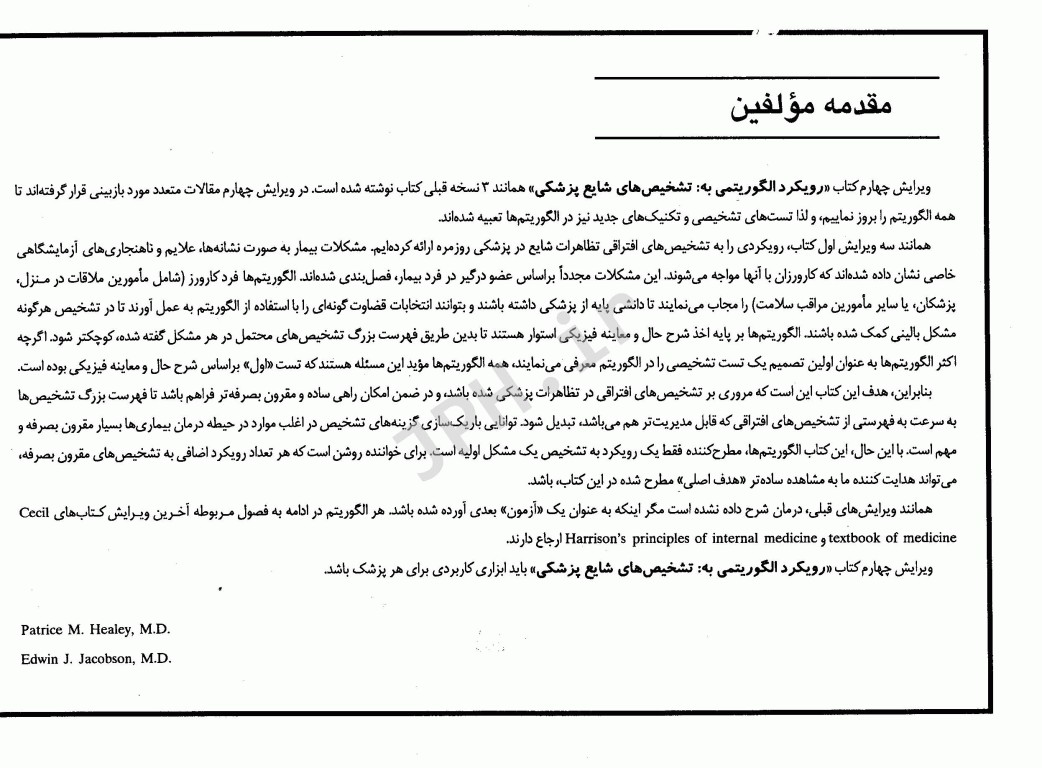 مقدمه مؤلفین
ویرایش چهارم کتاب «رویکرد الگوریتمی به: تشخیص‌های شایع پزشکی» همانند ۳ نسخه قبلی کتاب نوشته شده است. در ویرایش چهارم مقالات متعدد مورد بازبینی قرار گرفته‌اند تا
همه الگوریتم را بروز نماییم، و لذا تست‌های تشخیصی و تکنیک‌های جدید نیز در الگوریتم‌ها تعبیه شده‌اند.
همانند سه ویرایش اول کتاب، رویکردی را به تشخیص‌های افتراقی تظاهرات شایع در پزشکی روزمره ارائه کرده‌ایم. مشکلات بیمار به صورت نشانه‌ها، علایم و ناهنجاری‌های آزمایشگاهی
خاصی نشان داده شده‌اند که کارورزان با آنها مواجه می‌شوند. این مشکلات مجدداً براساس عضو درگیر در فرد بیمار، فصل‌بندی شده‌اند. الگوریتم‌ها فرد کارورز (شامل مأمورین ملاقات در منزل،
پزشکان، یا سایر مأمورین مراقب سلامت) را مجاب می‌نمایند تا دانشی پایه از پزشکی داشته باشند و بتوانند انتخابات قضاوت گونه‌ای را با استفاده از الگوریتم به عمل آورند تا در تشخیص هرگونه
مشکل بالینی کمک شده باشند. الگوریتم‌ها بر پایه اخذ شرح حال و معاینه فیزیکی استوار هستند تا بدین طریق فهرست بزرگ تشخیص‌های محتمل در هر مشکل گفته شده، کوچکتر شود. اگرچه
اکثر الگوریتم‌ها به عنوان اولین تصمیم یک تست تشخیصی را در الگوریتم معرفی می‌نمایند، همه الگوریتم‌ها مؤید این مسئله هستند که تست «اول» براساس شرح حال و معاینه فیزیکی بوده است.
بنابراین، هدف این کتاب این است که مروری بر تشخیص‌های افتراقی در تظاهرات پزشکی شده باشد، و در ضمن امکان راهی ساده و مقرون بصرفه‌تر فراهم باشد تا فهرست بزرگ تشخیص‌ها
به سرعت به فهرستی از تشخیص‌های افتراقی که قابل مدیریت‌تر هم می‌باشد، تبدیل شود. توانایی باریک‌سازی گزینه‌های تشخیص در اغلب موارد در حیطه درمان بیماری‌ها بسیار مقرون بصرفه و
مهم است. با این حال، این کتاب الگوریتم‌ها، مطرح‌کننده فقط یک رویکرد به تشخیص یک مشکل اولیه است. برای خواننده روشن است که هر تعداد رویکرد اضافی به تشخیص‌های مقرون بصرفه،
می‌تواند هدایت کننده ما به مشاهده ساده‌تر «هدف اصلی» مطرح شده در این کتاب، باشد.
همانند ویرایش‌های قبلی، درمان شرح داده نشده است مگر اینکه به عنوان یک «آزمون» بعدی آورده شده باشد. هر الگوریتم در ادامه به فصول مربوطه آخرین ویرایش کتاب‌های Cecil
textbook of medicine و Harrison's principles of internal medicine ارجاع دارند.
ویرایش چهارم کتاب «رویکرد الگوریتمی به: تشخیص‌های شایع پزشکی» باید ابزاری کاربردی برای هر پزشک باشد.
Patrice M. Healey, M.D.
Edwin J. Jacobson, M.D.
JPH.ir